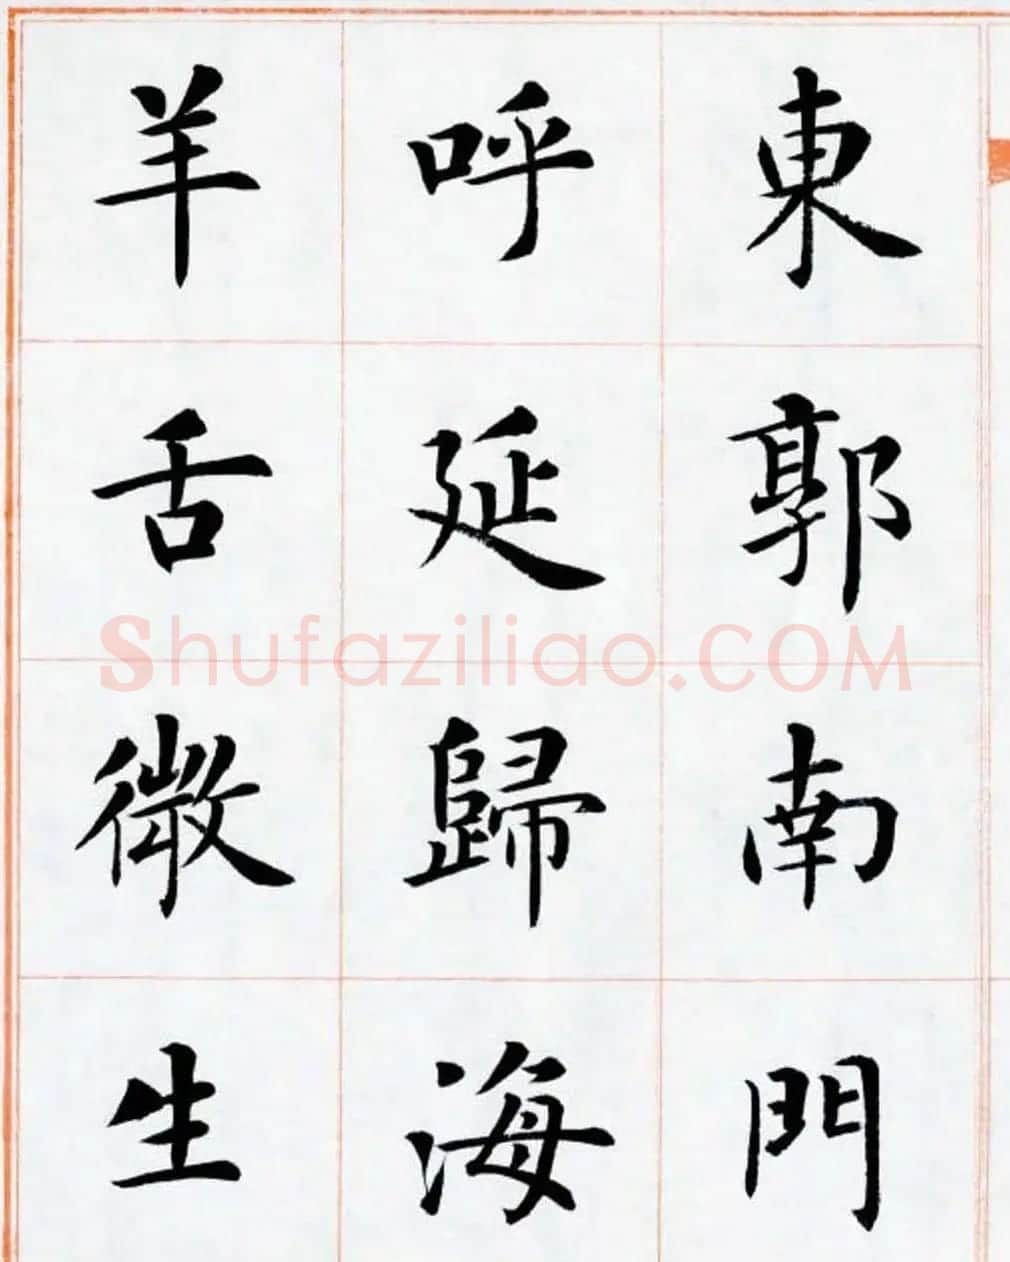 東郭南門
呼延歸海
羊舌微生
Shufaziliao.COM